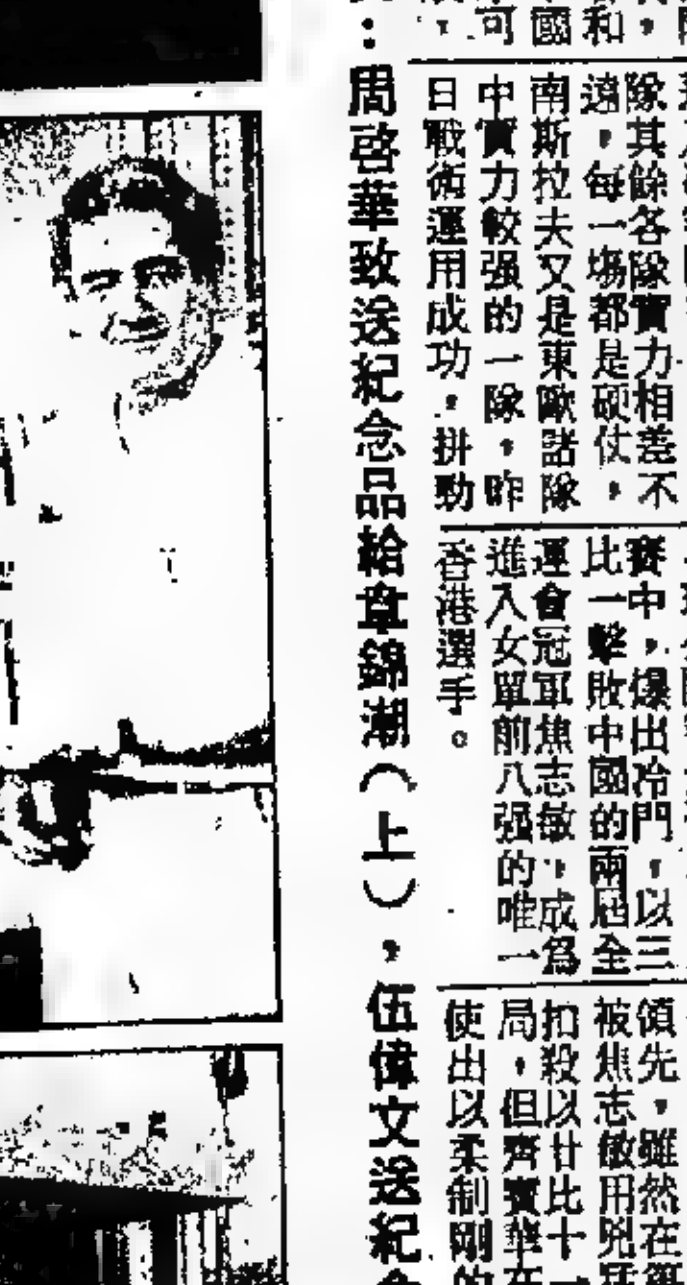 隊其餘各隊實力相差不
遠，每一場都是硬仗，
南斯拉夫又是東歐諸隊
中實力較强的一隊，昨
日戰術運用成功，拼勁
賽中，爆出冷門，以三
比一擊敗中國的兩屆全
運會冠軍焦志敏，成爲
進入女單前八强的唯一
香港選手。
領先，雖然在
被焦志敏用兇
扣殺以廿比十
局，但齊寶華在
使出以柔制剛的
：周啓華致送紀念品給章錦潮（上），伍偉文送紀念